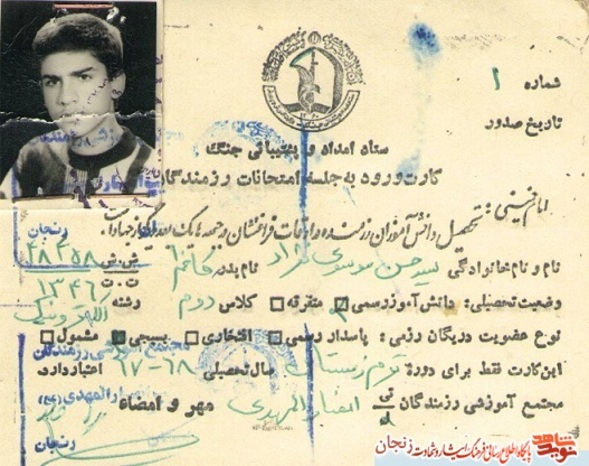 شماره ۱
تاریخ صدور
ستاد امداد و پشتیبانی جنگ
کارت ورود به جلسه امتحانات رزمندگان
امام خمینی:
تحصیل دانش آموزان رزمنده در اوقات فراغتشان در جبهه ها یک بعد دیگر از جهاد است.
زنجان
نام و نام خانوادگی سید حسن موسوی نژاد نام پدر کاظم ش.ش
ت.ت ۱۳۴۶
وضعیت تحصیلی: دانش آموز رسمی متفرقه کلاس دوم رشته الکترونیک
نوع عضویت در یگان رزمی: پاسدار رسمی افتخاری بسیجی مشمول
مجتمع آموزشی رزمندگان
این کارت فقط برای دوره ترم زمستان سال تحصیلی ۶۸-۶۷ اعتبار دارد.
انصار المهدی (عج)
مجتمع آموزشی رزمندگان انصار المهدی مهر و امضاء
زنجان
نوید شاهد پایگاه اطلاع رسانی فرهنگ ایثار و شهادت زنجان